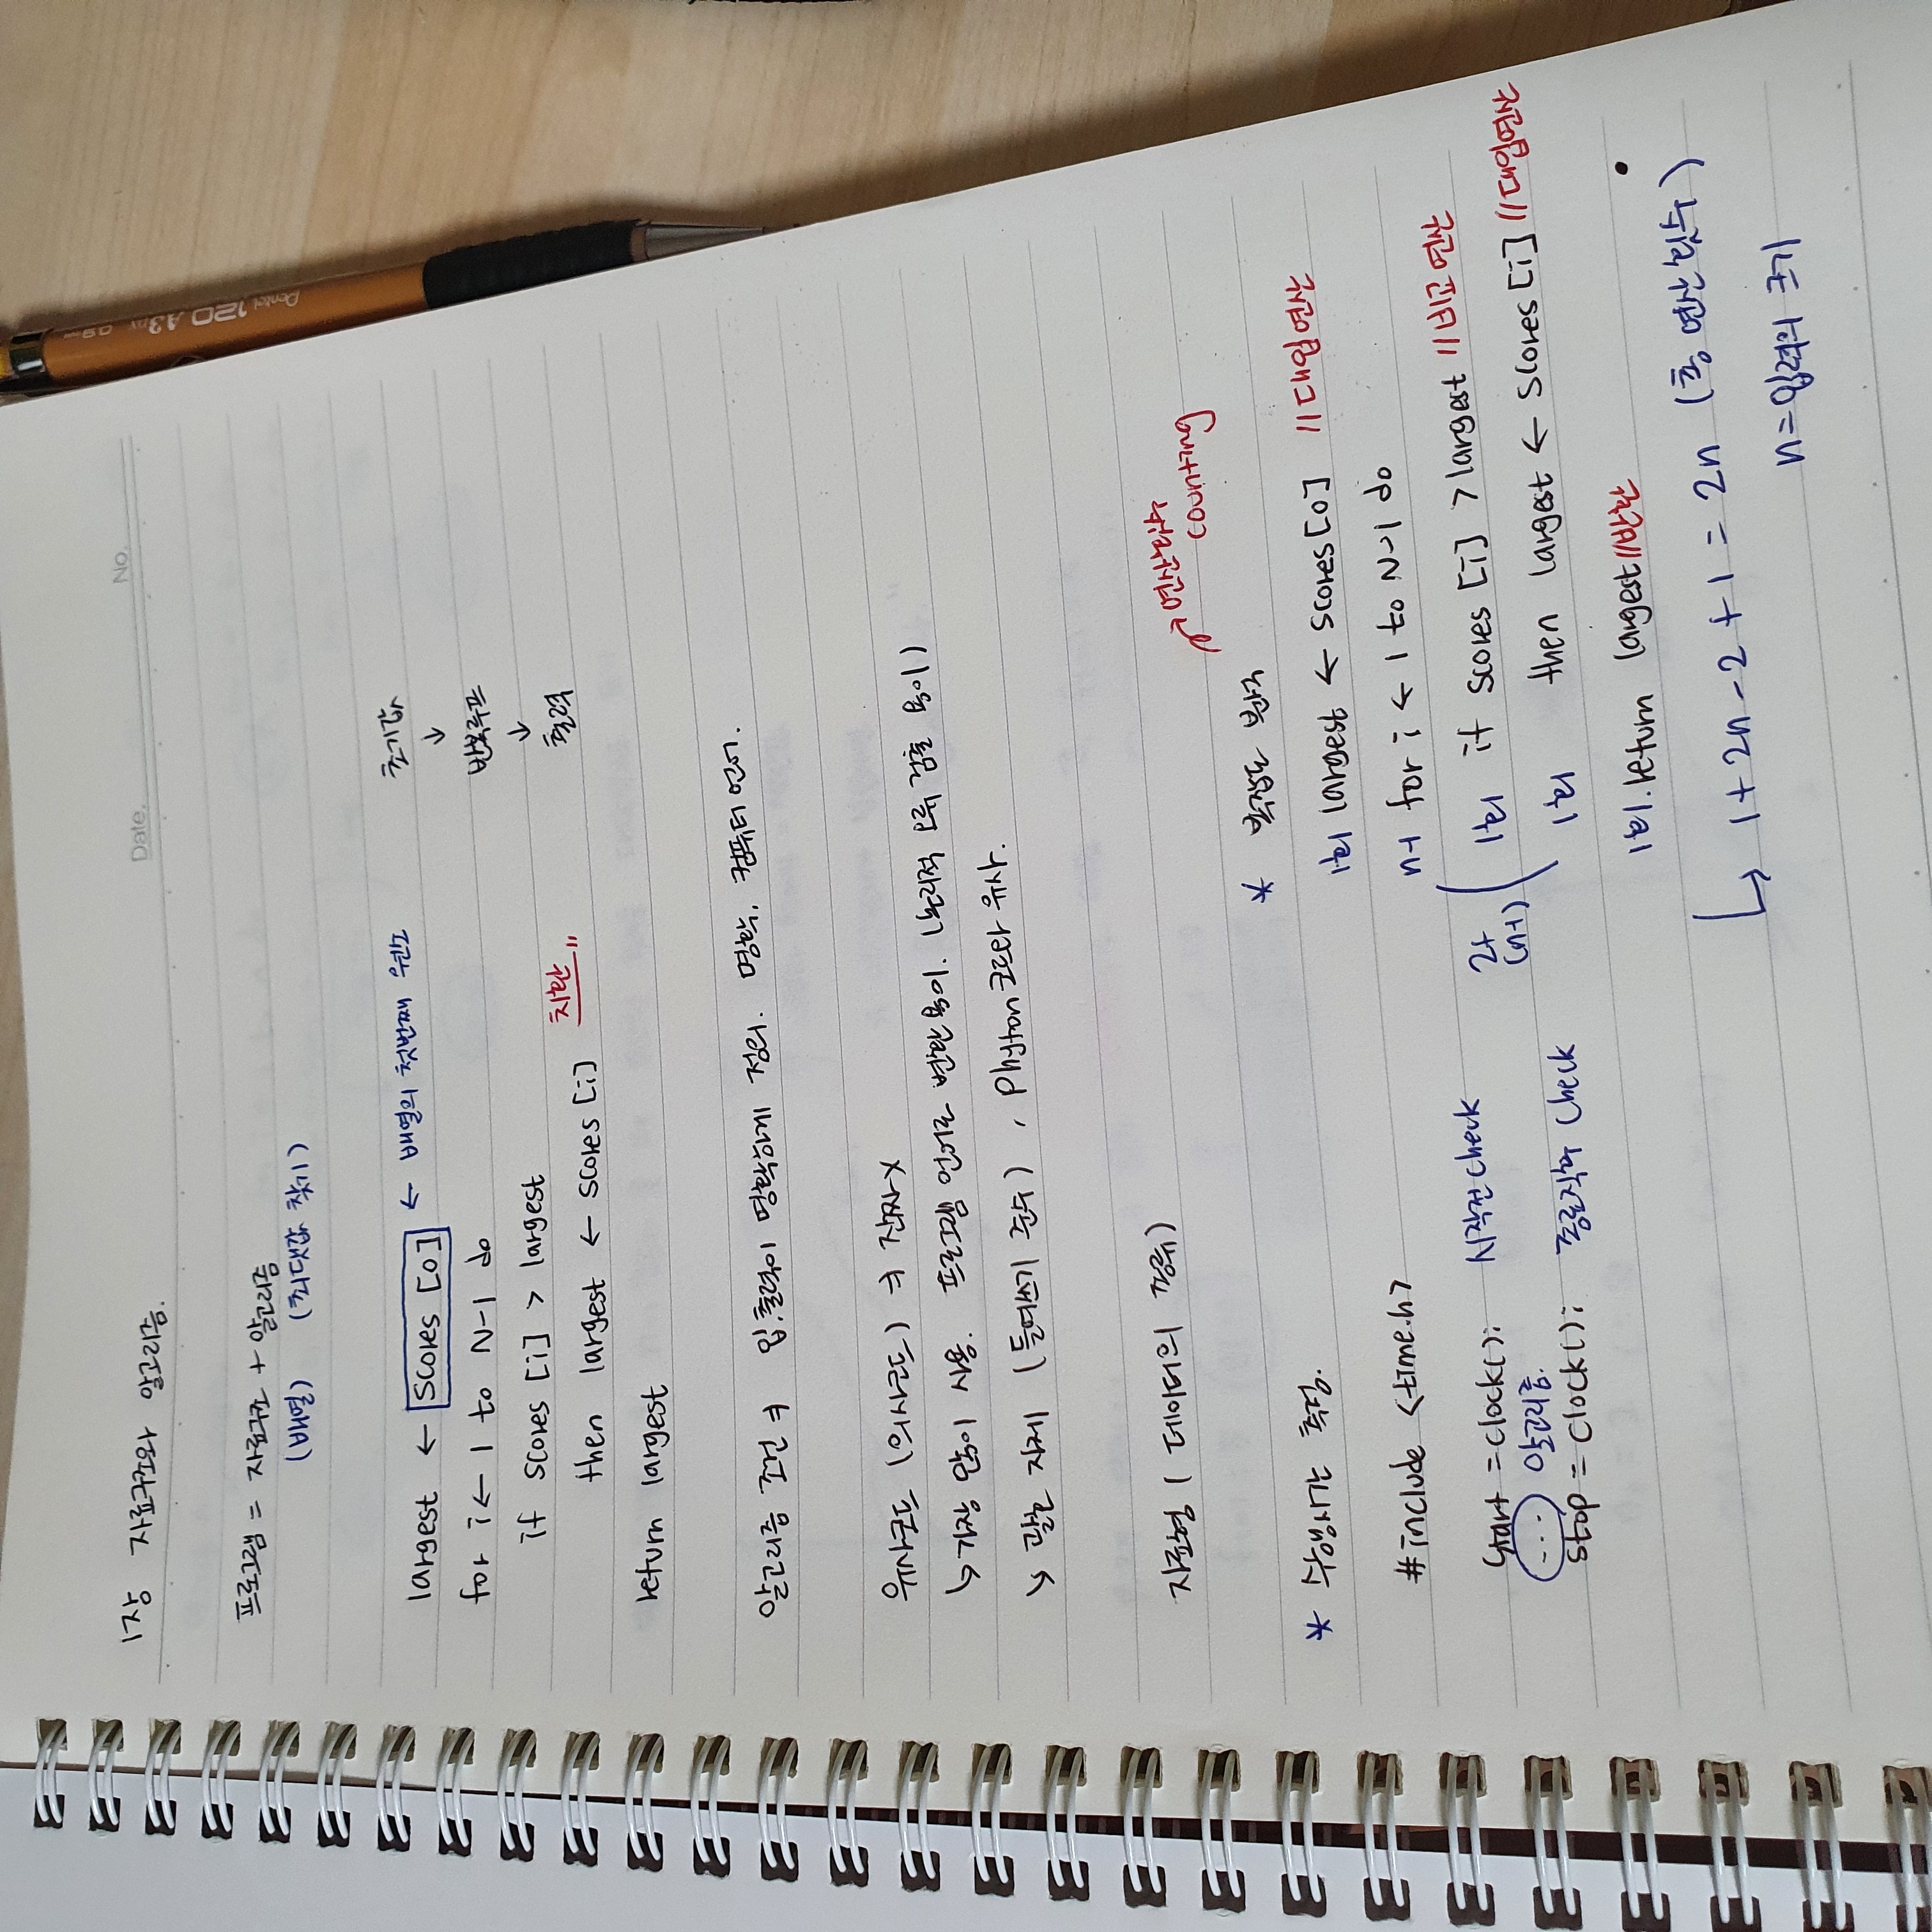 Date. No.
1장 자료구조와 알고리즘.
프로그램 = 자료구조 + 알고리즘
(배열) (최댓값 찾기)
largest ← scores [0] ← 배열의 첫번째 원소
for i ← 1 to N-1 do
if scores [i] > largest
then largest ← scores [i] 치환 〃
return largest
초기값
↓
반복루프
↓
출력
알고리즘 조건 ⇒ 입,출력이 명확하게 정의. 명확, 컴퓨터 언어.
유사코드 (의사코드) ⇒ 진짜 X
↳ 가장 많이 사용. 프로그램 언어로 변환 용이. (논리적 오류 검출 용이)
↘ 괄호 자제 (들여쓰기 준수) , Phyton 코드와 유사.
자료형 ( 데이터의 종류)
* 수행시간 측정.
#include <time.h>
start = clock(); 시작전 check
... 알고리즘.
stop = clock(); 종료직후 check
→ 연산횟수
counting
* 복잡도 분석
1회 largest ← scores[0] //대입연산
n-1 for i ← 1 to N-1 do
2*
(n-1)
1회 if scores [i] > largest //비교연산
1회 then largest ← scores [i] //대입연산
1회. return largest //반환
↳ 1 + 2n - 2 + 1 = 2n (총 연산 횟수)
n = 입력의 크기
Pentel 120 A3